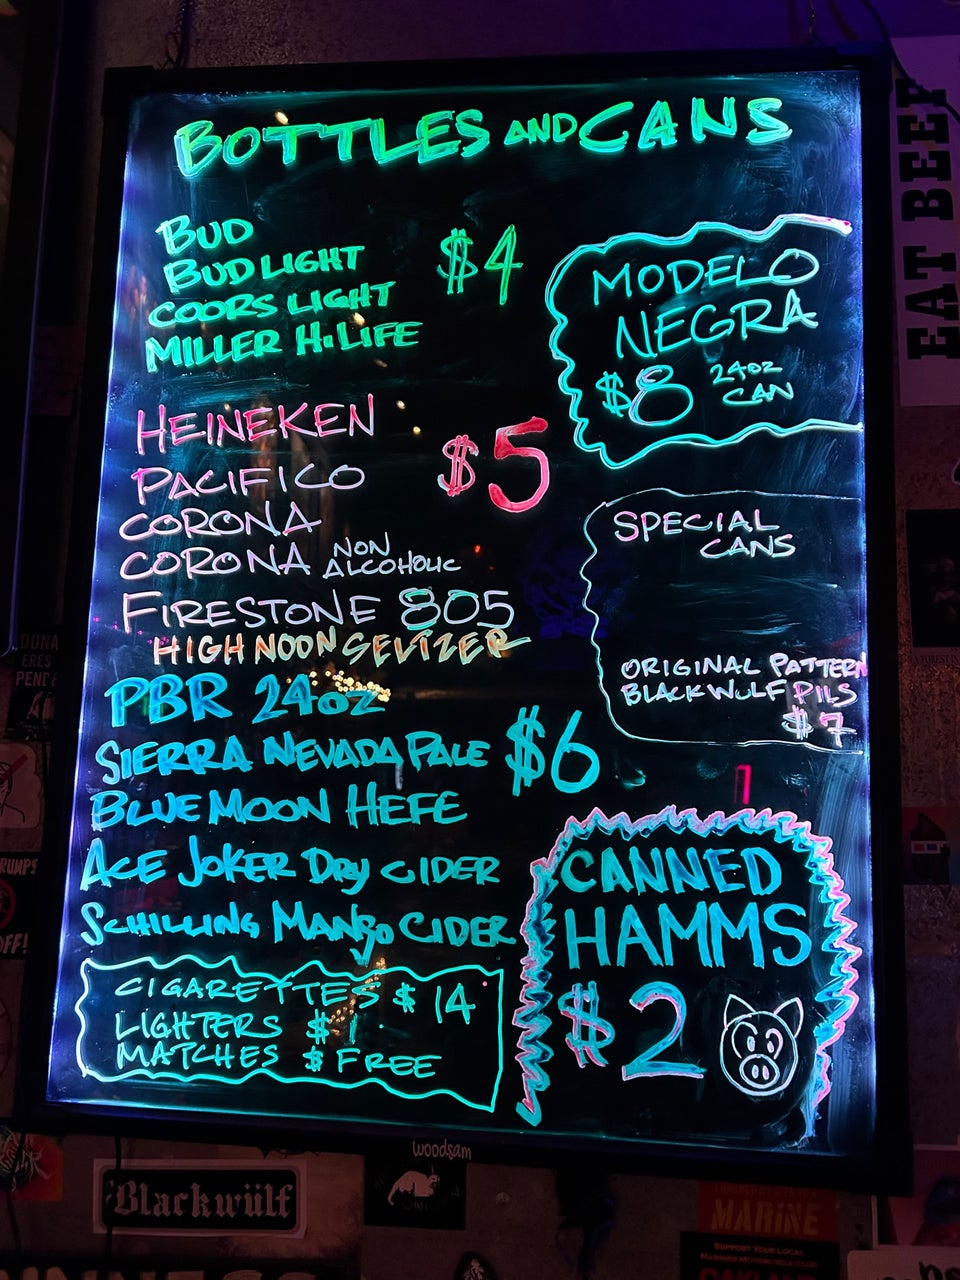 BOTTLES AND CANS
BUD
BUD LIGHT
COORS LIGHT
MILLER HI LIFE
$4
HEINEKEN
PACIFICO
CORONA
CORONA NON ALCOHOLIC
FIRESTONE 805
HIGH NOON SELTZER
$5
PBR 24oz
SIERRA NEVADA PALE
BLUE MOON HEFE
ACE JOKER DRY CIDER
SCHILLING MANGO CIDER
$6
CIGARETTES $14
LIGHTERS $1
MATCHES $FREE
MODELO
NEGRA
$8 24oz CAN
SPECIAL
CANS
ORIGINAL PATTERN
BLACKWULF PILS
$7
CANNED
HAMMS
$2
EAT BEEF
woodsam
Blackwülf
MARINE
SUPPORT YOUR LOCAL